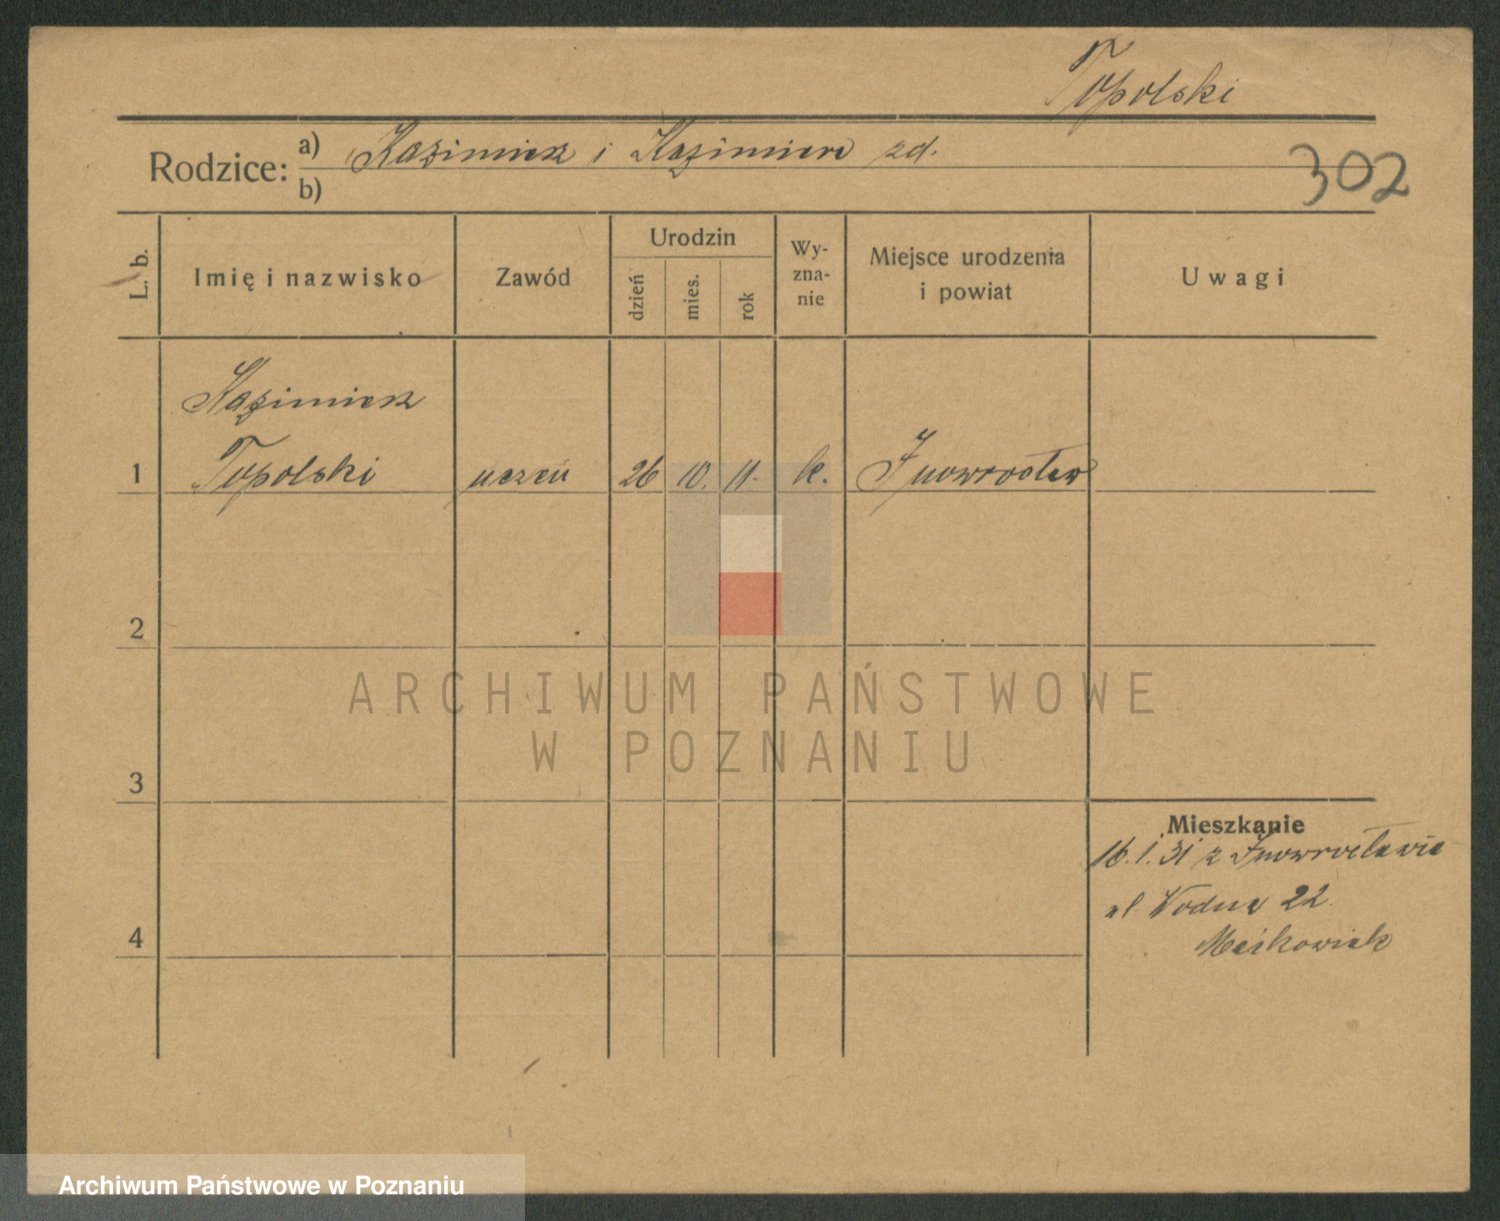 Topolski
Rodzice: a) Kazimierz i Kazimiera zd.
b)
302
L. b.
Imię i nazwisko
Zawód
Urodzin
dzień
mies.
rok
Wy-
zna-
nie
Miejsce urodzenia
i powiat
Uwagi
Kazimierz
1 Topolski uczeń 26 10. 11. k. Inowrocław
2
3
4
Mieszkanie
16. 1. 31 z Inowrocławia
ul. Wodna 22
ARCHIWUM PAŃSTWOWE
W POZNANIU
Archiwum Państwowe w Poznaniu